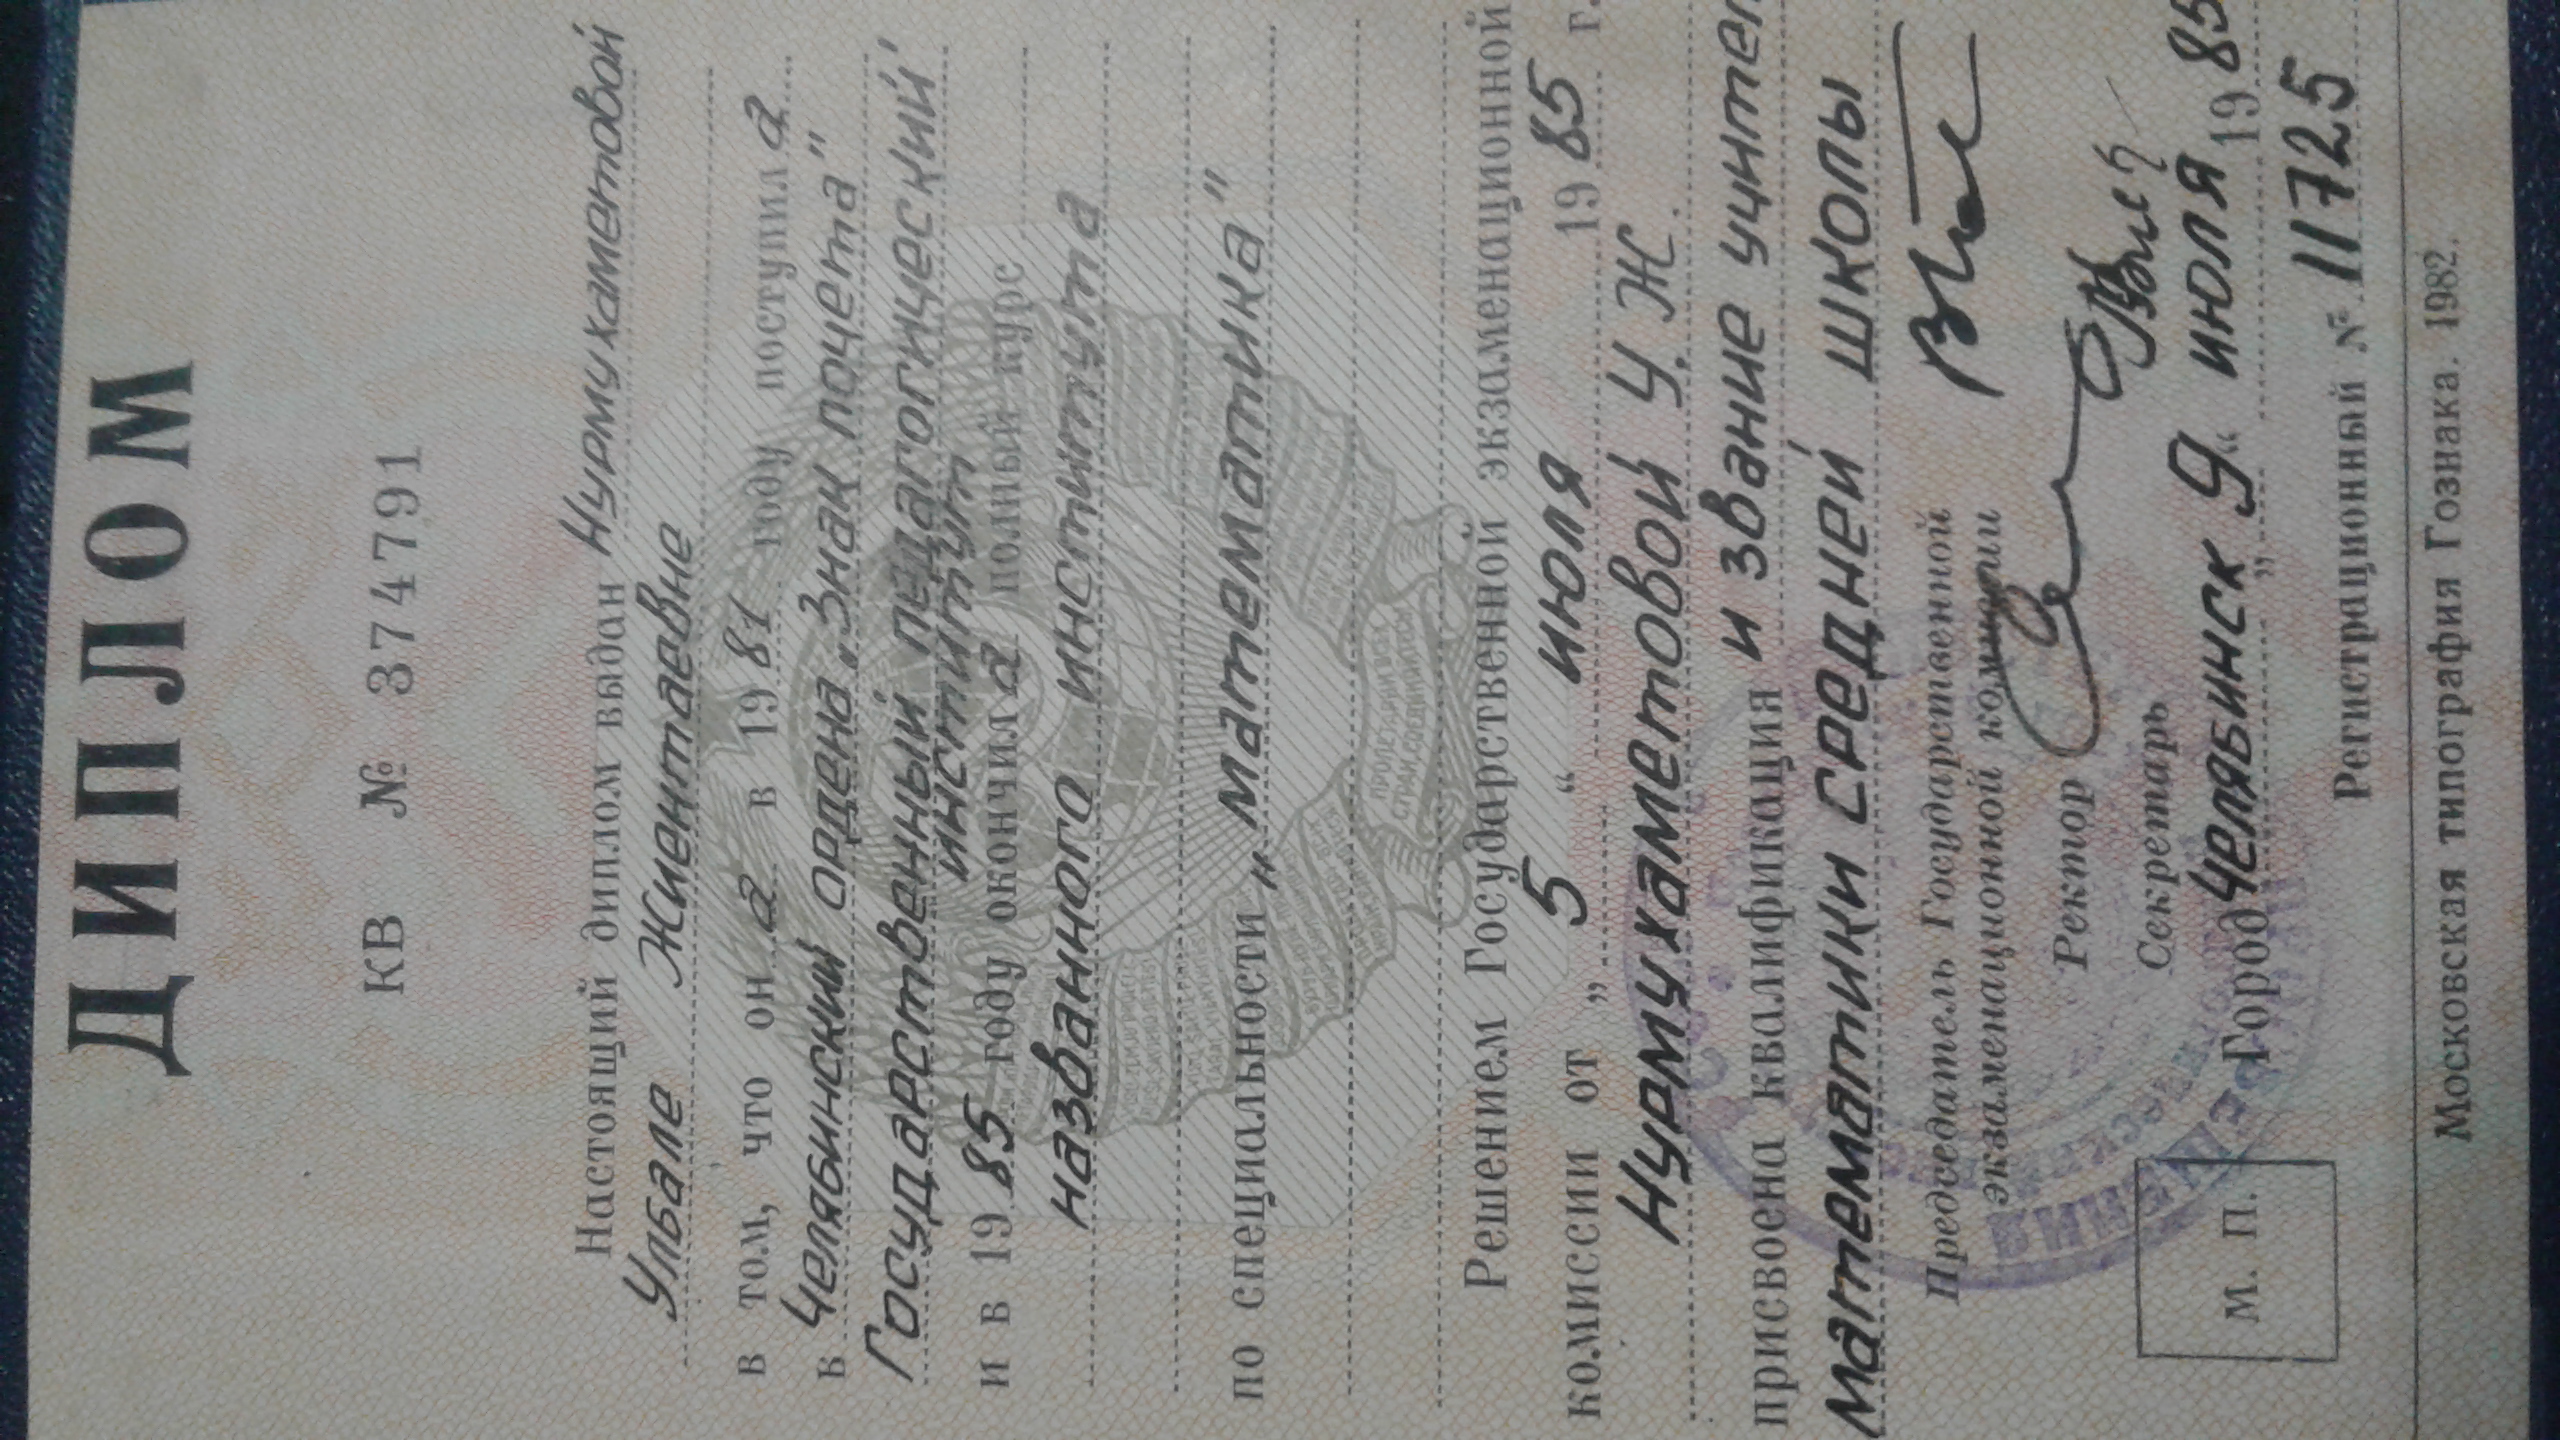 ДИПЛОМ
КВ № 374791
Настоящий диплом выдан Нурмухаметовой
Улбале Жиентаевне
в том, что он а в 19 81 году поступил а
в Челябинский ордена „Знак почета"
Государственный педагогический
институт
и в 19 85 году окончил а полный курс
названного института
по специальности „математика"
Решением Государственной экзаменационной
комиссии от „ 5 " июля 19 85 г.
Нурмухаметовой У. Ж.
присвоена квалификация и звание учител
математики средней школы
Председатель Государственной
экзаменационной комиссии
Ректор
Секретарь
Город Челябинск „ 9 " июля 19 85
М. П.
Регистрационный № 11725
Московская типография Гознака. 1982.